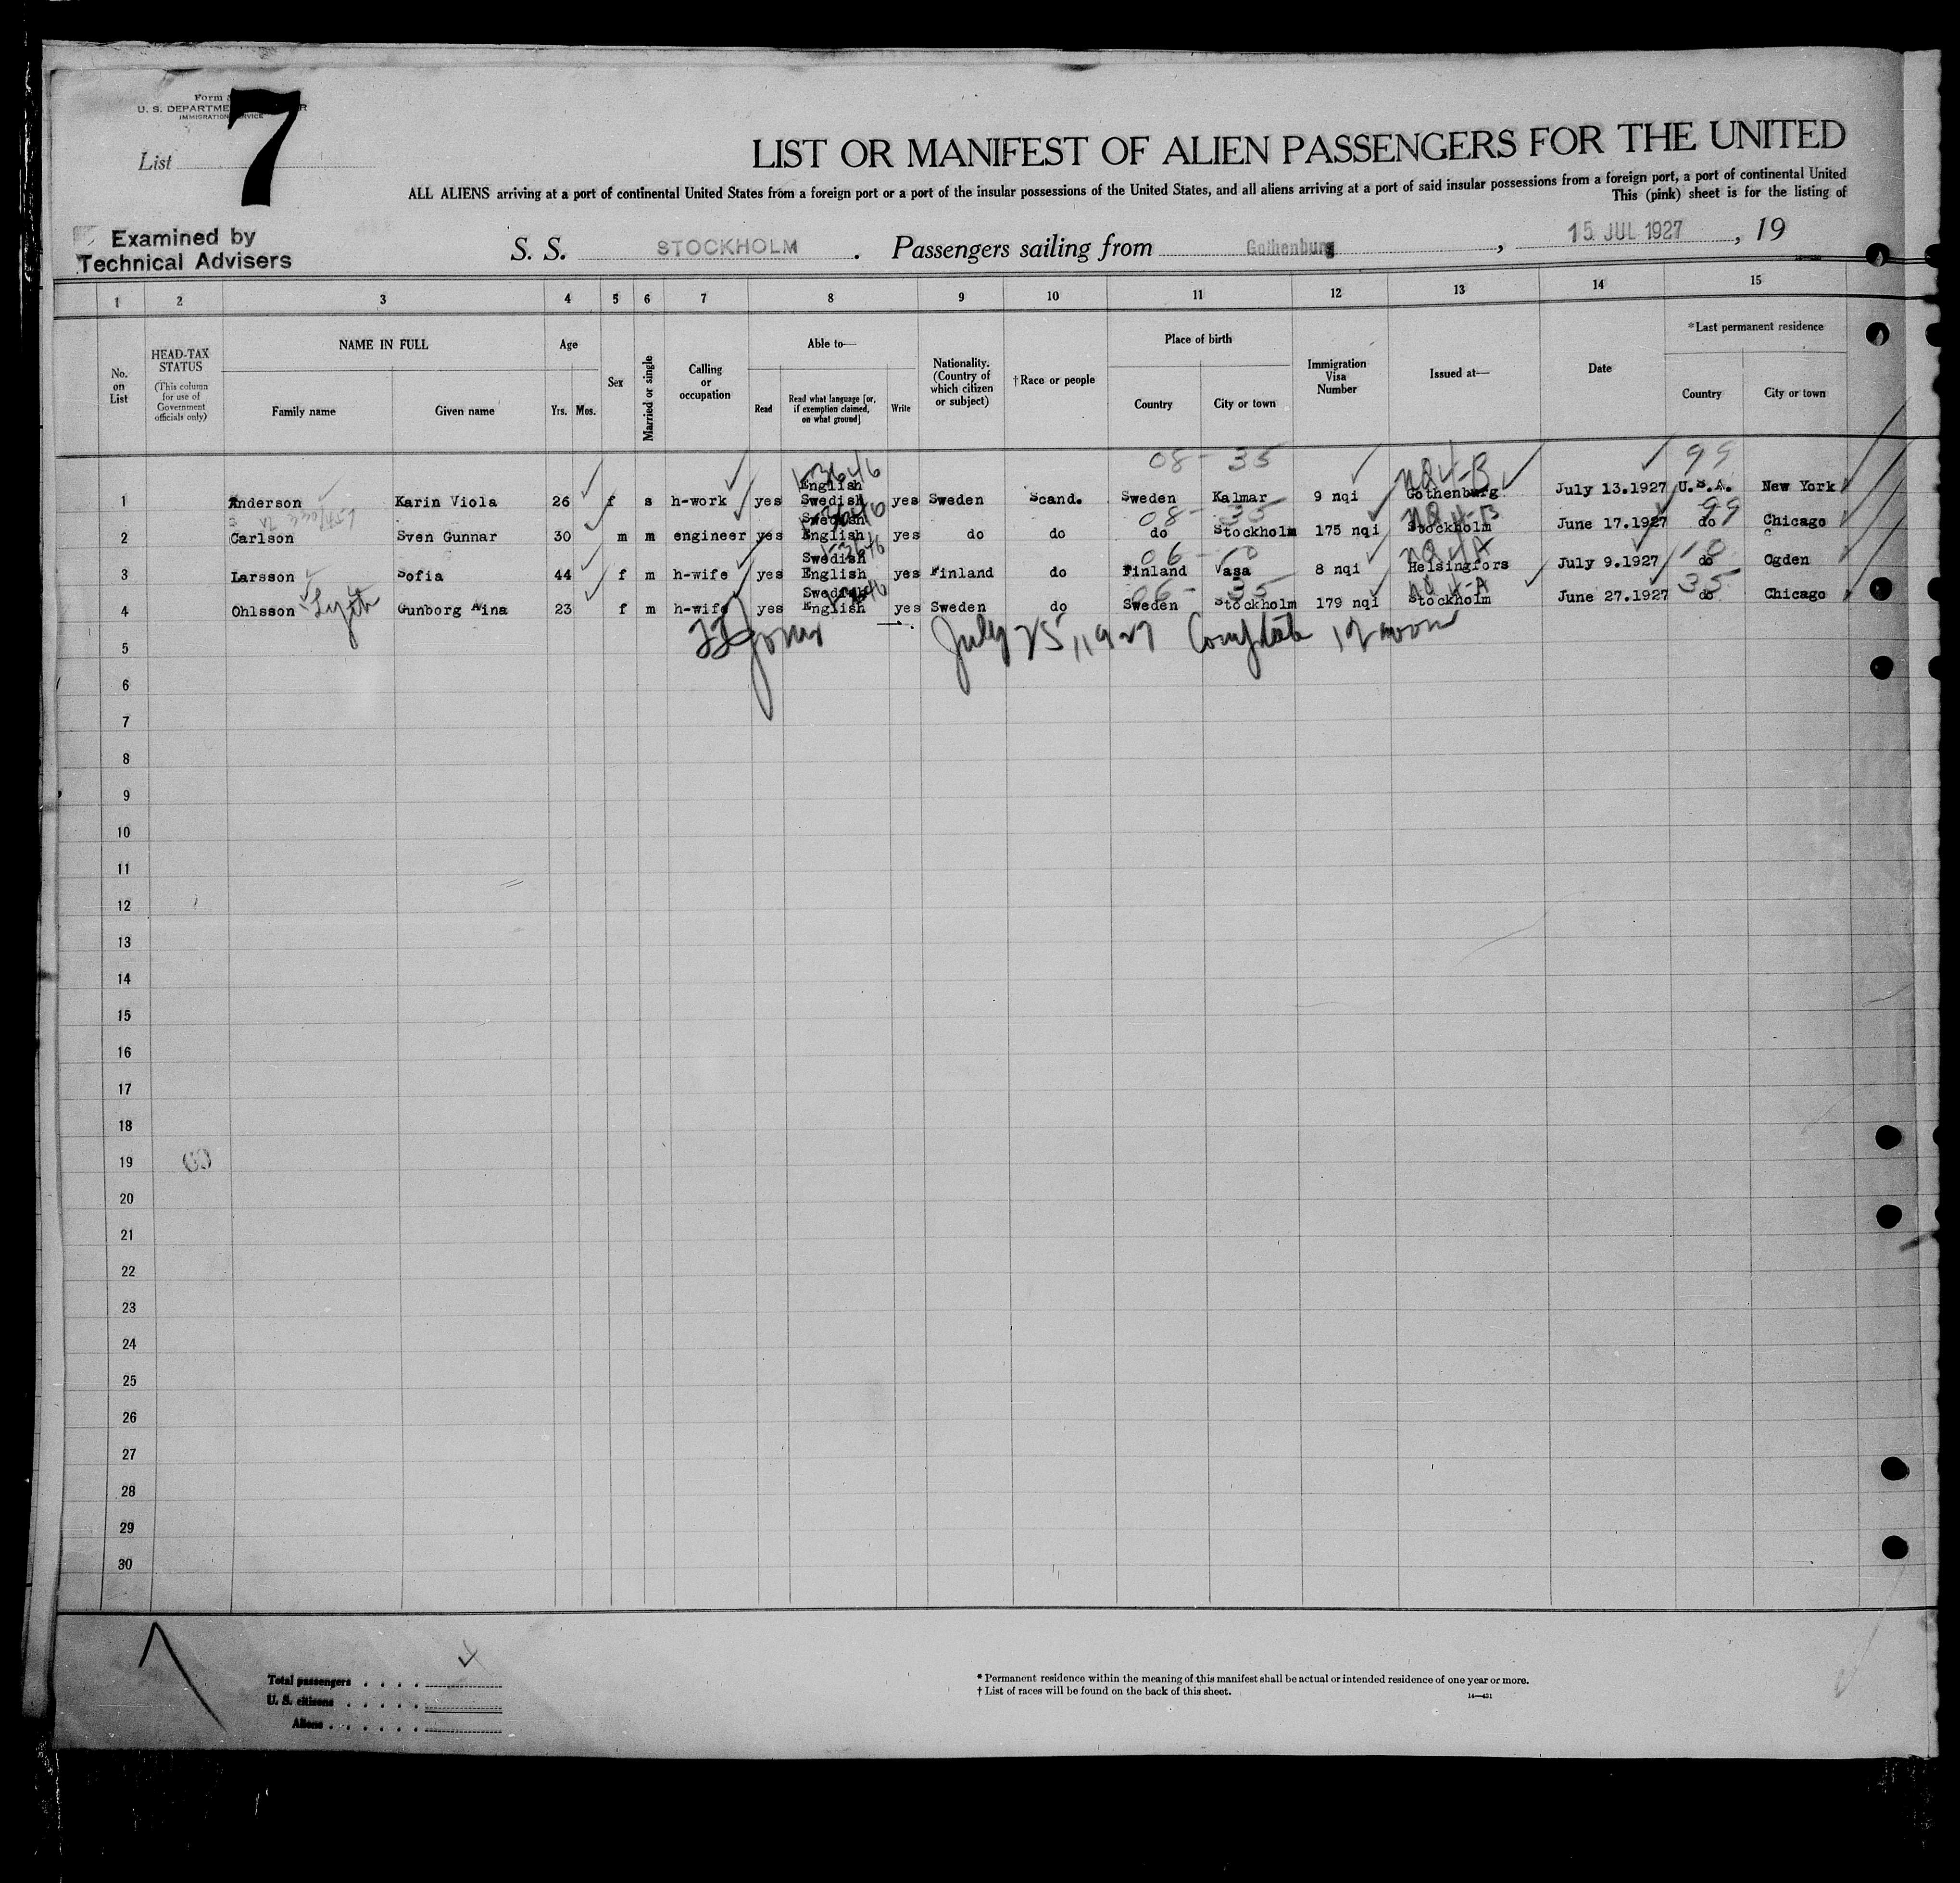 Form
U. S. DEPARTME R
IMMIGRATION SERVICE
List 7
LIST OR MANIFEST OF ALIEN PASSENGERS FOR THE UNITED
ALL ALIENS arriving at a port of continental United States from a foreign port or a port of the insular possessions of the United States, and all aliens arriving at a port of said insular possessions from a foreign port, a port of continental United
This (pink) sheet is for the listing of
Examined by
Technical Advisers
S. S. STOCKHOLM . Passengers sailing from Gothenburg , 15 JUL 1927 , 19
1 2 3 4 5 6 7 8 9 10 11 12 13 14 15
No. on List
HEAD-TAX STATUS (This column for use of Government officials only)
NAME IN FULL Family name Given name
Age Yrs. Mos.
Sex
Married or single
Calling or occupation
Able to— Read Read what language [or, if exemption claimed, on what ground] Write
Nationality. (Country of which citizen or subject)
†Race or people
Place of birth Country City or town
Immigration Visa Number
Issued at—
Date
*Last permanent residence Country City or town
08 - 35 99
1 Anderson Karin Viola 26 f s h-work yes English Swedish yes Sweden Scand. Sweden Kalmar 9 nqi Gothenburg July 13.1927 U.S.A. New York
08 - 35 99
2 Carlson Sven Gunnar 30 m m engineer yes Swedish English yes do do do Stockholm 175 nqi Stockholm June 17.1927 do Chicago
3 Larsson Sofia 44 f m h-wife yes Swedish English yes Finland do Finland Vasa 8 nqi Helsingfors July 9.1927 do Ogden
06 - 35 35
4 Ohlsson Gunborg Aina 23 f m h-wife yes Swedish English yes Sweden do Sweden Stockholm 179 nqi Stockholm June 27.1927 do Chicago
July 25, 1927 Complete 12 noon
5
6
7
8
9
10
11
12
13
14
15
16
17
18
19
20
21
22
23
24
25
26
27
28
29
30
Total passengers . . . .
U. S. citizens . . . . .
Aliens . . . . . .
* Permanent residence within the meaning of this manifest shall be actual or intended residence of one year or more.
† List of races will be found on the back of this sheet.
14—431